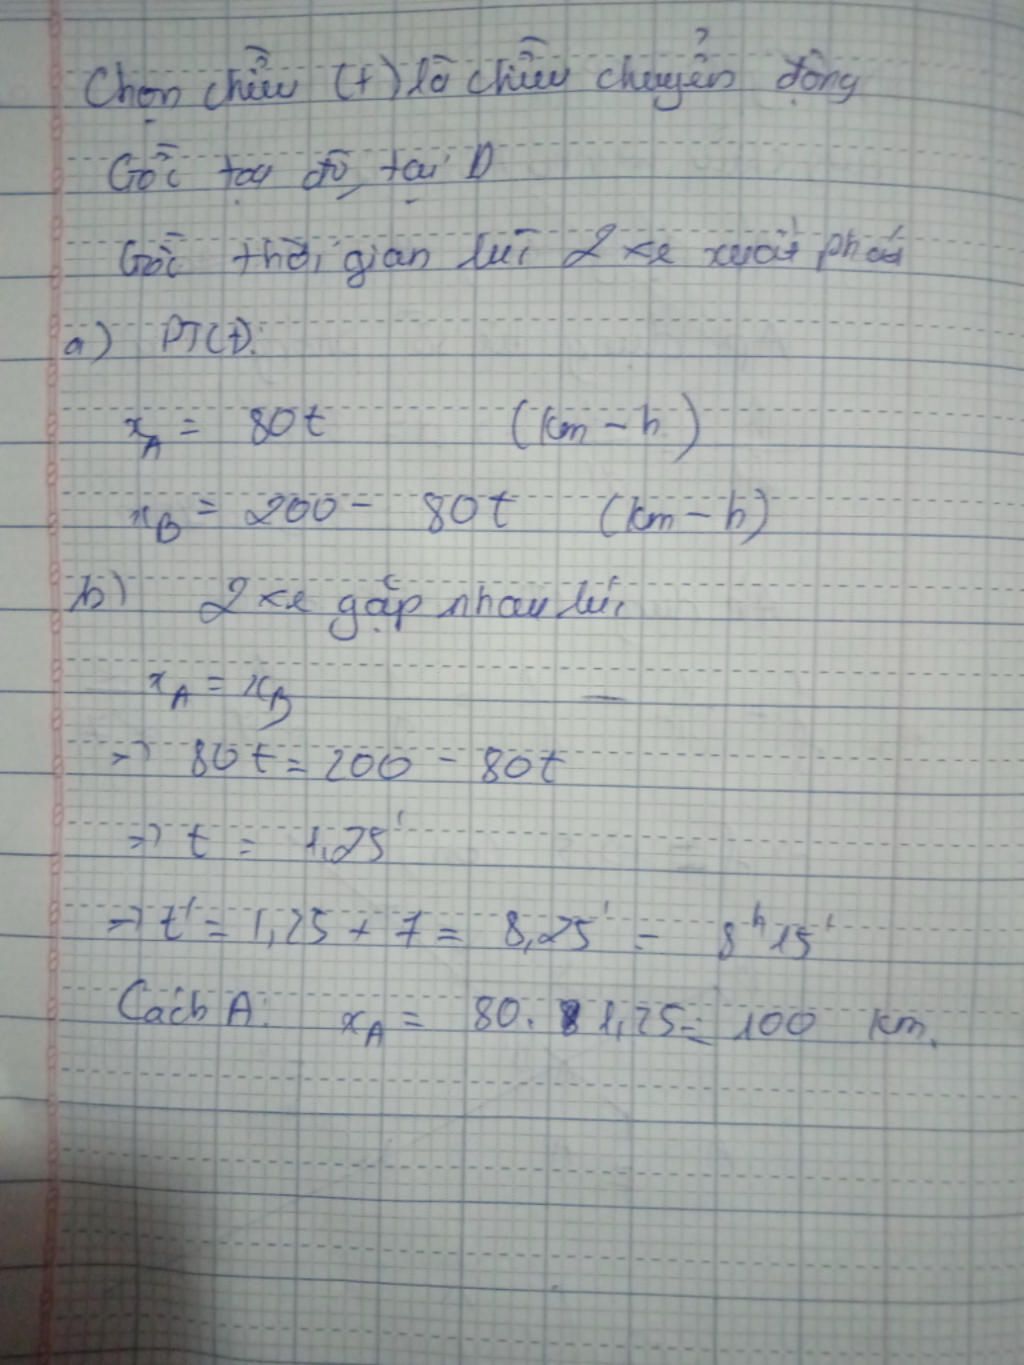 Chọn chiều (+) là chiều chuyển động
Gốc tọa độ tại D
Gốc thời gian lúc 2 xe xuất phát
a) PTCĐ:
x_A = 80t (km - h)
x_B = 200 - 80t (km - h)
b) 2 xe gặp nhau lúc
x_A = x_B
=> 80t = 200 - 80t
=> t = 1,25'
=> t' = 1,25 + 7 = 8,25' = 8h15'
Cách A: x_A = 80. 1,25 = 100 km.